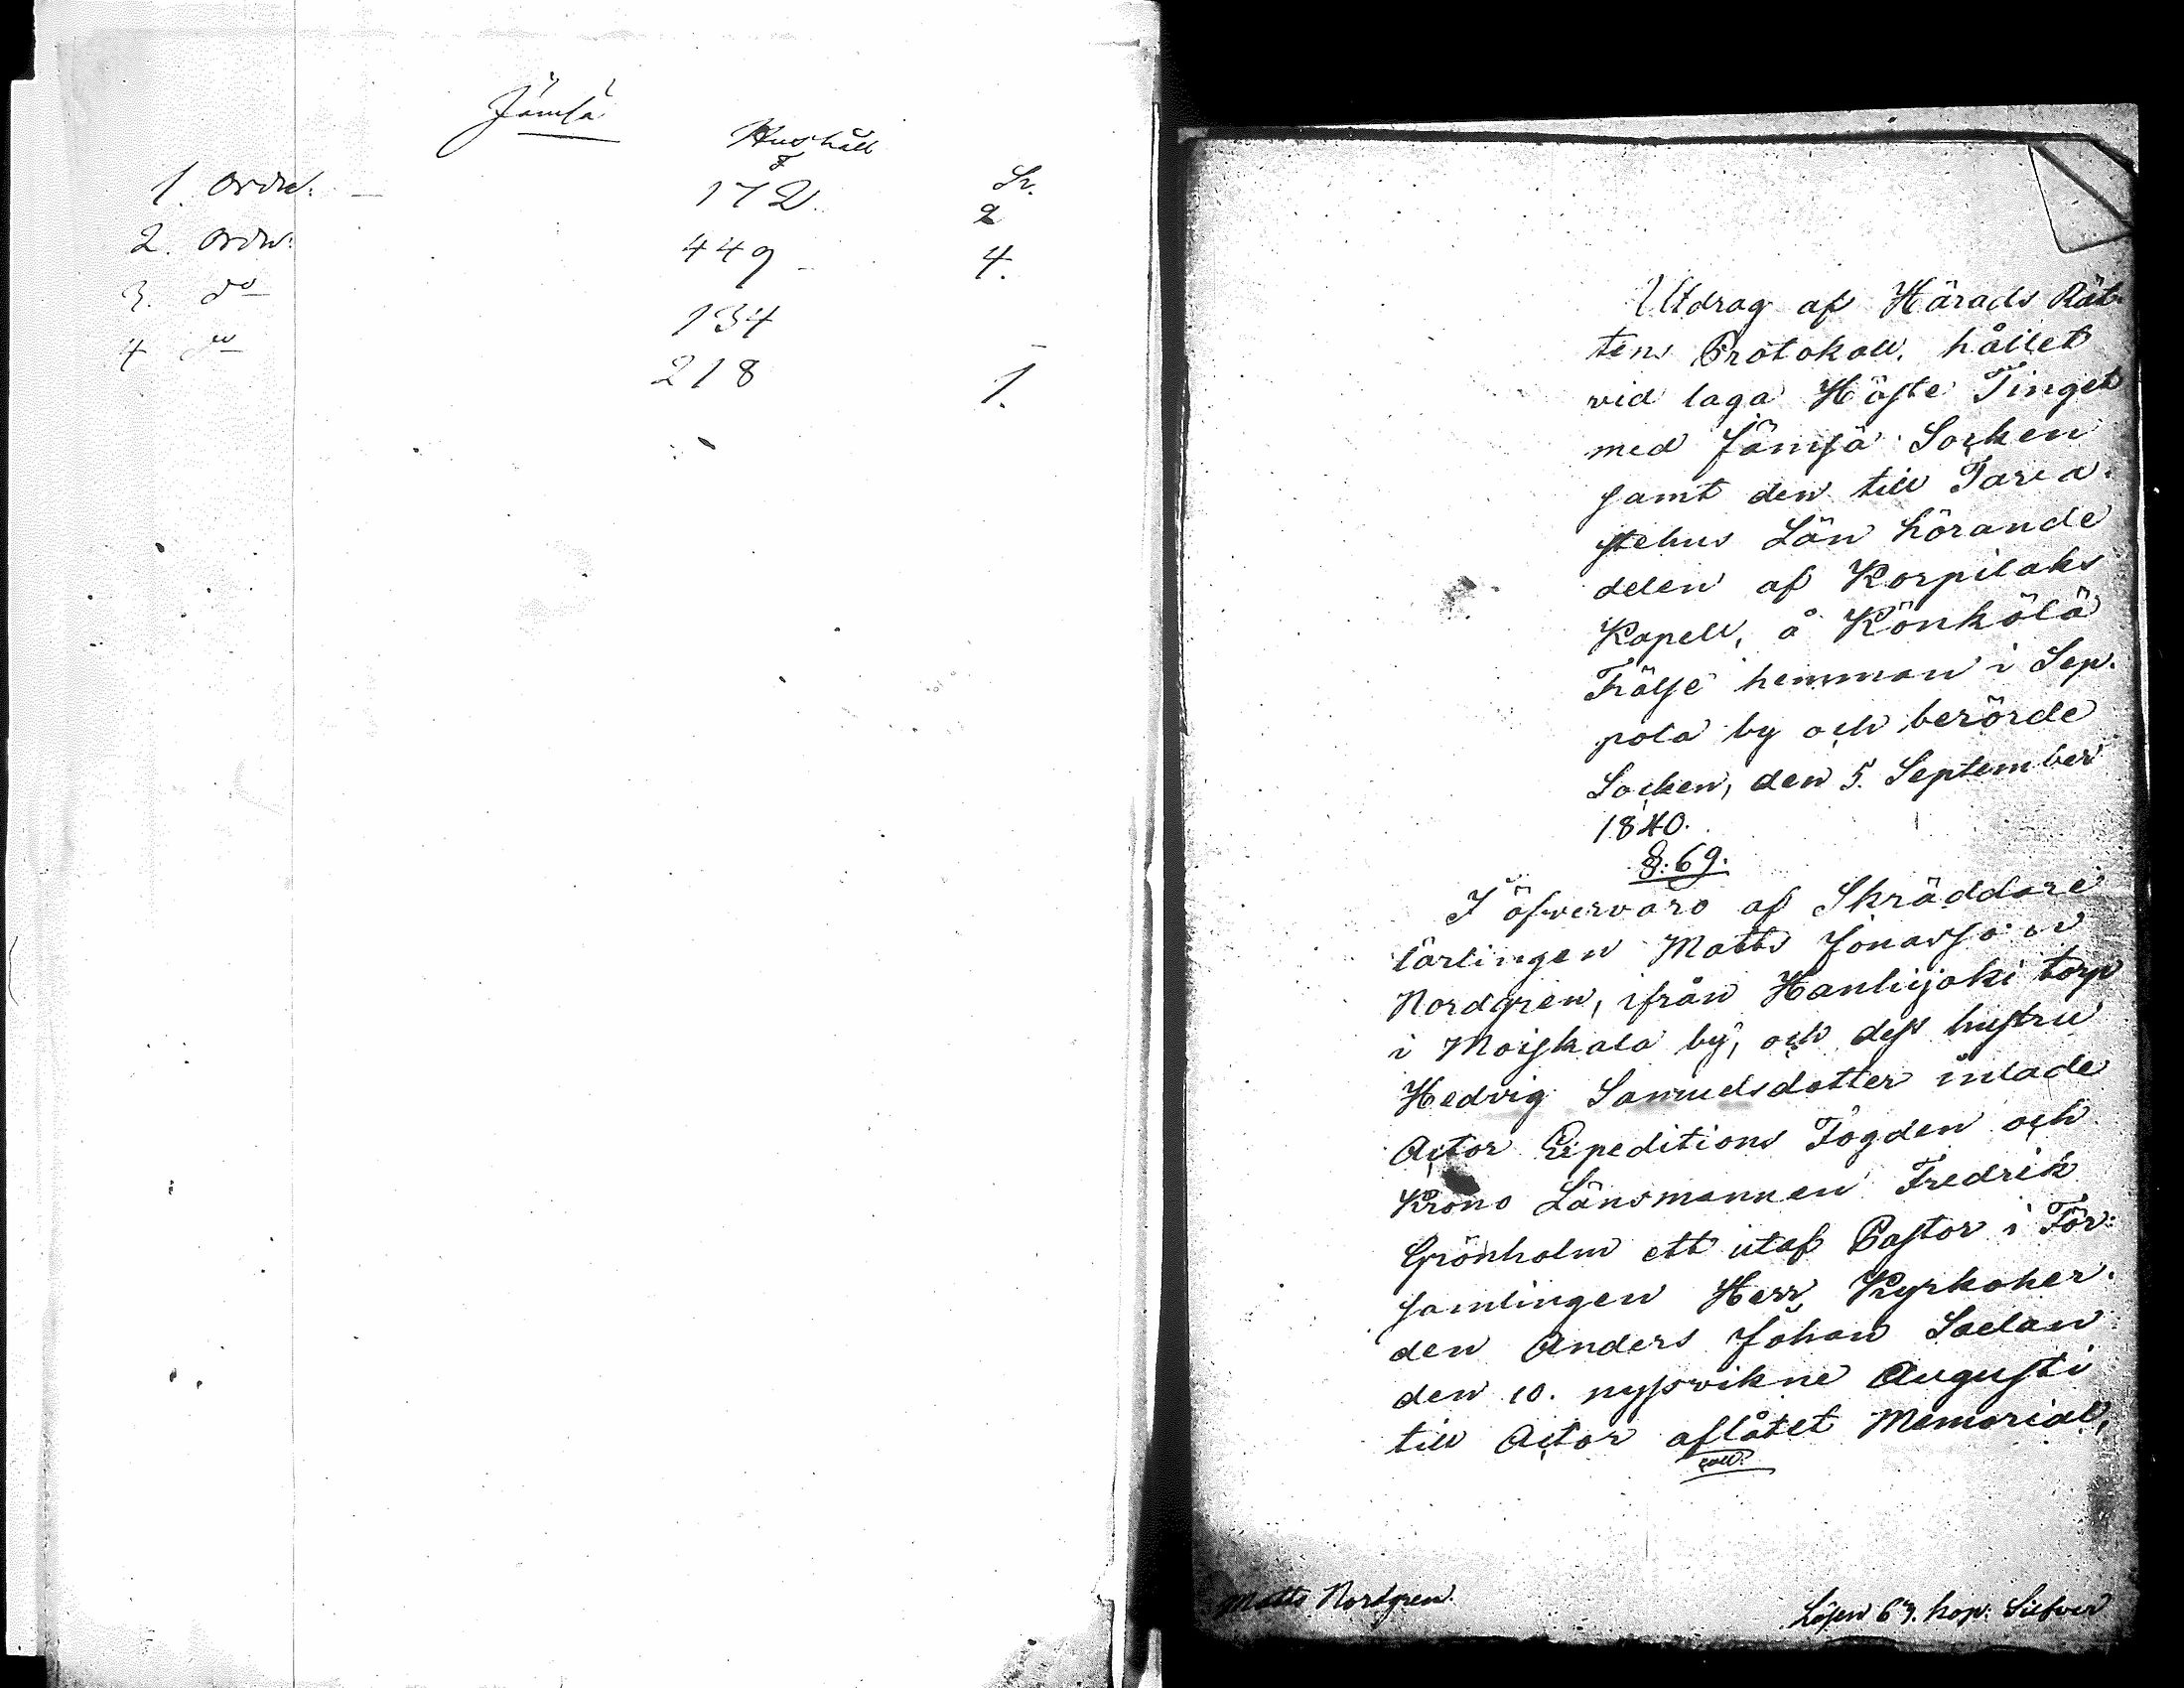 Jämsä
Hushåll
Sr.
1. Ordn: — 172. 2
2. Ordn: 449 - 4.
3. do 134 -
4 do 218 1.
Utdrag af Härads Rät-
tens Protokoll, hållet
vid laga Höste Tinget
med Jämsä Socken
samt den till Tava-
stehus Län hörande
delen af Korpilaks
Kapell, å Könkölä
Frälse hemman i Sep-
pola by och berörde
Socken, den 5. September
1840.
§. 69.
I öfvervaro af Skräddare
lärlingen Matts Jonasson
Nordgren, ifrån Hanhijoki torp
i Moiskala by, och dess hustru
Hedvig Samuelsdotter inlade
Actor Expeditions Fogden och
Krono Länsmannen Fredrik
Grönholm ett utaf Pastor i För-
samlingen Herr Kyrkoher-
den Anders Johan Saelan
den 10. nyssvikne Augusti
till Actor aflåtet Memorial,
Matts Nordgren.
Lösen 63. kop: Silfver